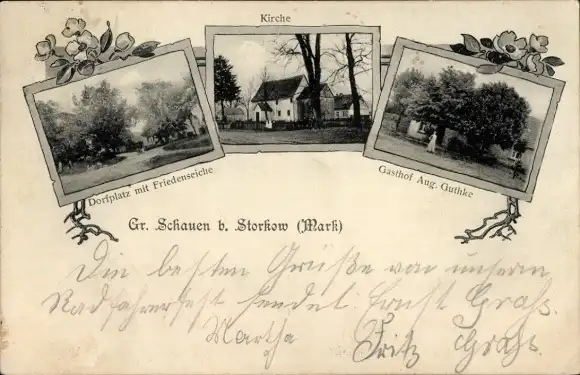 Kirche
Dorfplatz mit Friedenseiche
Gasthof Aug. Guthke
Gr. Schauen b. Storkow (Mark)
Die besten Grüße von unserem
Radfahrerfest sendet Ernst Graß.
Martha Fritz Graß.